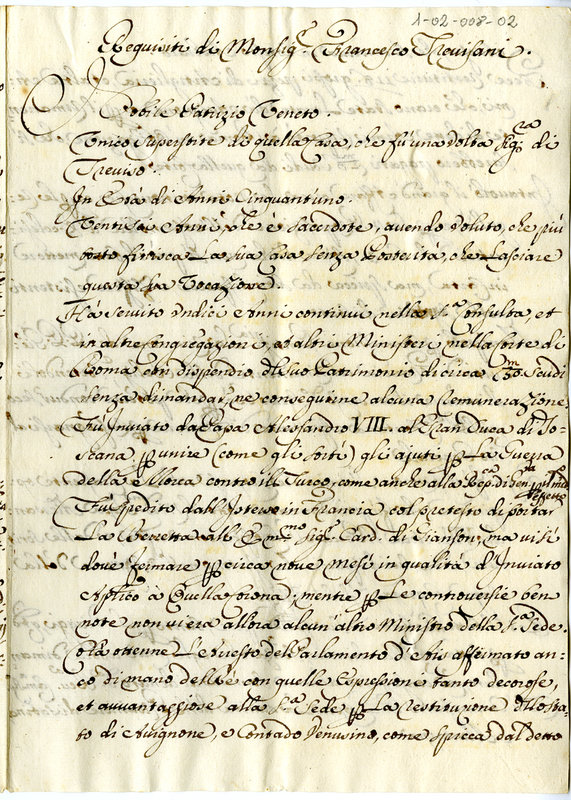 1-02-008-02
Requisiti di Monsig.r Francesco Trevisani.
Nobile Patrizio Veneto.
Unico superstite di quella Casa, che fù una volta sig.ra di
Treviso.
In Età di Anni Cinquantuno.
Ventisei Anni, che è sacerdote, avendo voluto, che più
tosto finisca La sua Casa senza Posterità, che Lasciare
questa sua Vocazione.
Hà servito Undici Anni continui nella S.a Consulta, et
in altre Congregazioni, et altri Ministeri nella Corte di
Roma con dispendio del suo Patrimonio di circa m/50 Scudi
senza dimandar, ne conseguirne alcuna remunerazione.
Fù Inviato da Papa Alessandro VIII. al Gran Duca di To-
scana per unire (come gli sortì) gli ajuti per La Guerra
della Morea contro il Turco, come anche alla Rep.ca di
Fù spedito dall'Istesso in Francia col pretesto di portar
La Berretta all'Em.mo Sig.r Card. di Gianson; ma vi si
dovè fermare per circa nove mesi in qualità d'Inviato
Aplico à quella Corona; mentre per Le controversie ben
note non vi era allora alcun altro Ministro della S.a Sede.
Colà ottenne L'Aresto del Parlamento d'Aix affirmato an-
co di mano del Rè con quelle Espressioni tanto decorose,
et avvantaggiose alla S.a Sede per La restituzione dello sta-
to di Avignone, e Contado Venusino, come spicca dal detto